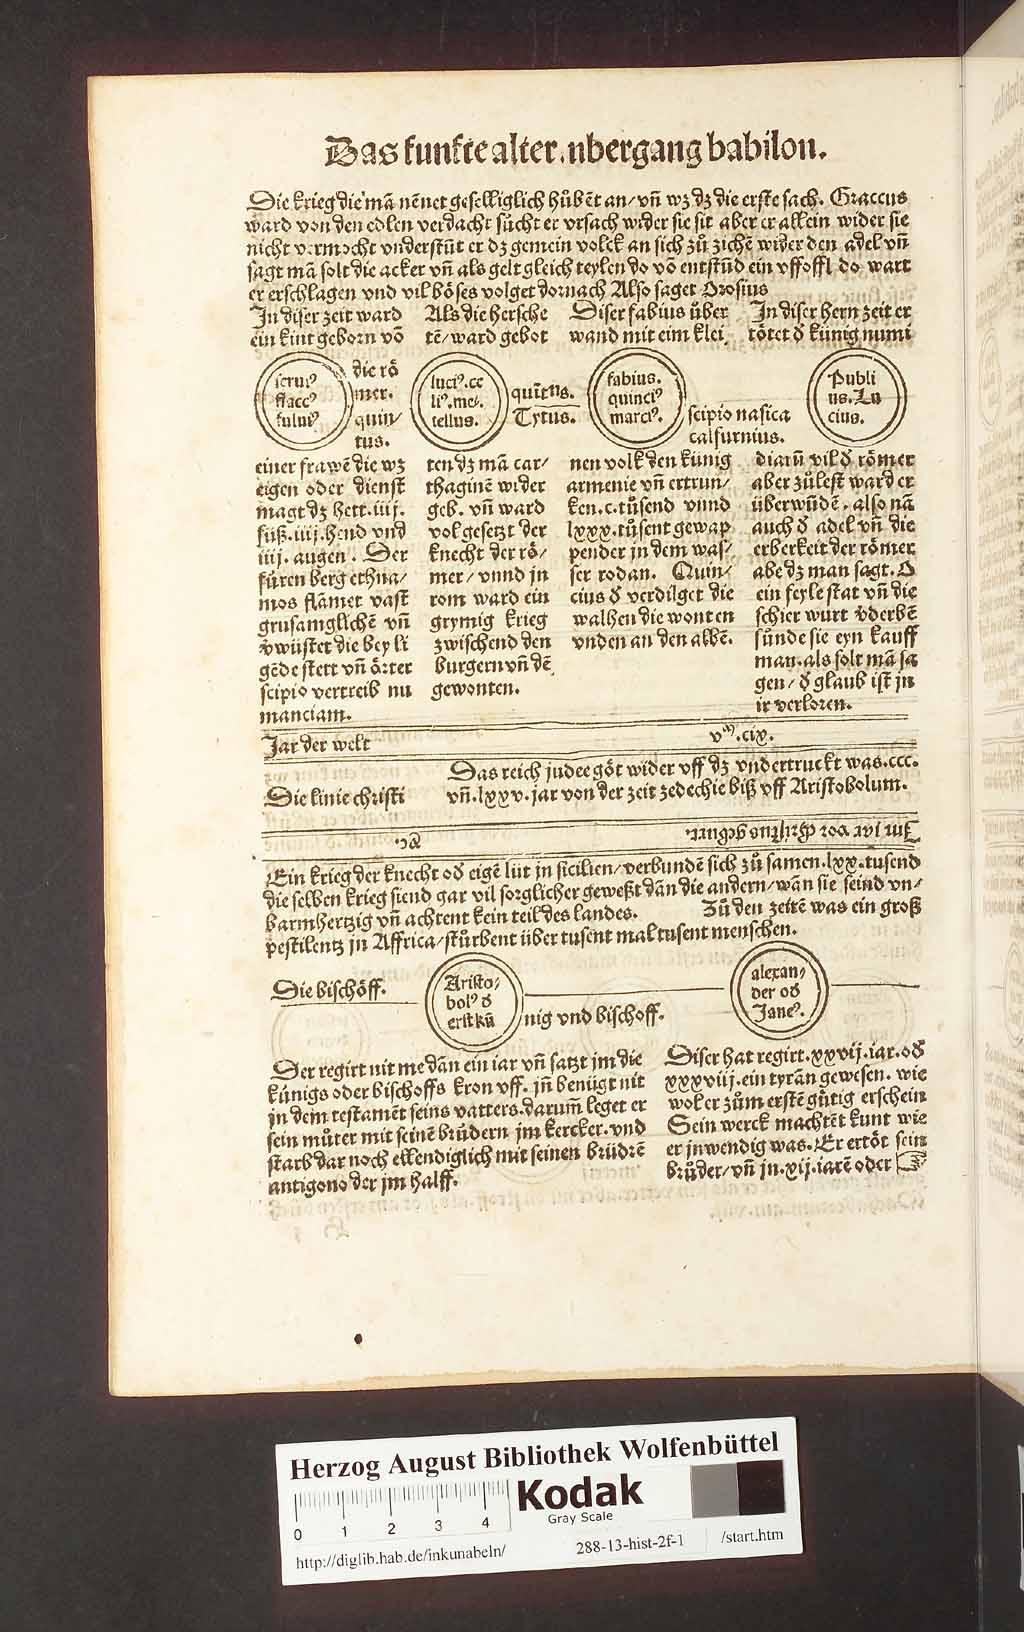 Das funfte alter. ubergang babilon.
Die krieg die mā nēnet geselliglich hůbēt an/ vn̄ wz dz die erste sach. Graccus
ward von den edlen verdacht sůcht er vrsach wider sie sit aber er allein wider sie
nicht vermocht vnderstůt er dz gemein volck an sich zů zichē wider den adel vn̄
sagt mā solt die acker vn̄ als gelt gleich teylen do vō entstůd ein vffoffl do wart
er erschlagen vnd vil bőses volget dornach Also saget Orosius
In diser zeit ward
ein kint geborn vō
seruiꝰ
flaccꝰ
fuluiꝰ
die rő
mer.
quin/
tus.
einer frawē die wz
eigen oder dienst
magt dz hett.iiij.
fůß.iiij.hend vnd
iiij. augen. Der
fůren berg ethna/
mos flāmet vast
grusamglichē vn̄
v̄wüstet die bey li
gēde stett vn̄ őrter
scipio vertreib nu
manciam.
Als die hersche
tē/ward gebot
luciꝰ.ce
liꝰ.me.
tellus.
quītus.
Tytus.
ten dz mā car/
thaginē wider
geb. vn̄ ward
vol gesetzt der
knecht der rő/
mer/ vnnd jn
rom ward ein
grymig krieg
zwischend den
burgern vn̄ dē
gewonten.
Diser fabius über
wand mit eim klei
fabius.
quinciꝰ
marciꝰ.
scipio nasica
calfurnius.
nen volk den künig
armenie vn̄ ertrun/
ken.c.tůsend vnnd
lxxx.tůsent gewap
pender jn dem was/
ser rodan. Quin/
cius d̛ verdilget die
walhen die wonten
vnden an den albē.
In diser hern zeit er
tőtet d̛ künig numi
Publi
us. Lu
cius.
diarū vil d̛ rőmer
aber zůlest ward er
überwūdē. also nā
auch d̛ adel vn̄ die
erberkeit der rőmer
abe dz man sagt. O
ein feyle stat vn̄ die
schier wurt v̄derbē
fůnde sie eyn kauff
man. als solt mā sa
gen/ d̛ glaub ist jn
ir verloren.
Jar der welt vᵐ.cix.
Die linie christi
Das reich judee gőt wider vff dz vndertruckt was.ccc.
vn̄.lxxv.jar von der zeit zedechie biß vff Aristobolum.
Im jar vor christus geburt. xc.
Ein krieg der knecht od̛ eigē lüt in sicilien/verbundē sich zů samen.lxx.tusend
die selben krieg siend gar vil sorglicher geweßt dān die andern/wān sie seind vn/
barmhertzig vn̄ achtent kein teil des landes. Zů den zeitē was ein groß
pestilentz jn Affrica/stůrbent über tusent mal tusent menschen.
Die bischőff.
Aristo/
bolꝰ d̛
erst kű
nig vnd bischoff.
alexan/
der od̛
Janeꝰ.
Der regirt nit me dān ein iar vn̄ satzt jm die
künigs oder bischoffs kron vff. jn̄ benügt nit
jn dem testamēt seins vatters.darum̄ leget er
sein můter mit seinē brůdern jm kercker.vnd
starb dar noch ellendiglich mit seinen brüdrē
antigono der jm halff.
Diser hat regirt.xxvij.iar.od̛
xxxviij.ein tyrān gewesen. wie
wol er zům erstē gůtig erschein
Sein werck machtēt kunt wie
er jnwendig was. Er ertőt sein
brůder/vn̄ jn.xij.iarē oder
Herzog August Bibliothek Wolfenbüttel
0 1 2 3 4
Kodak
Gray Scale
http://diglib.hab.de/inkunabeln/ 288-13-hist-2f-1 /start.htm